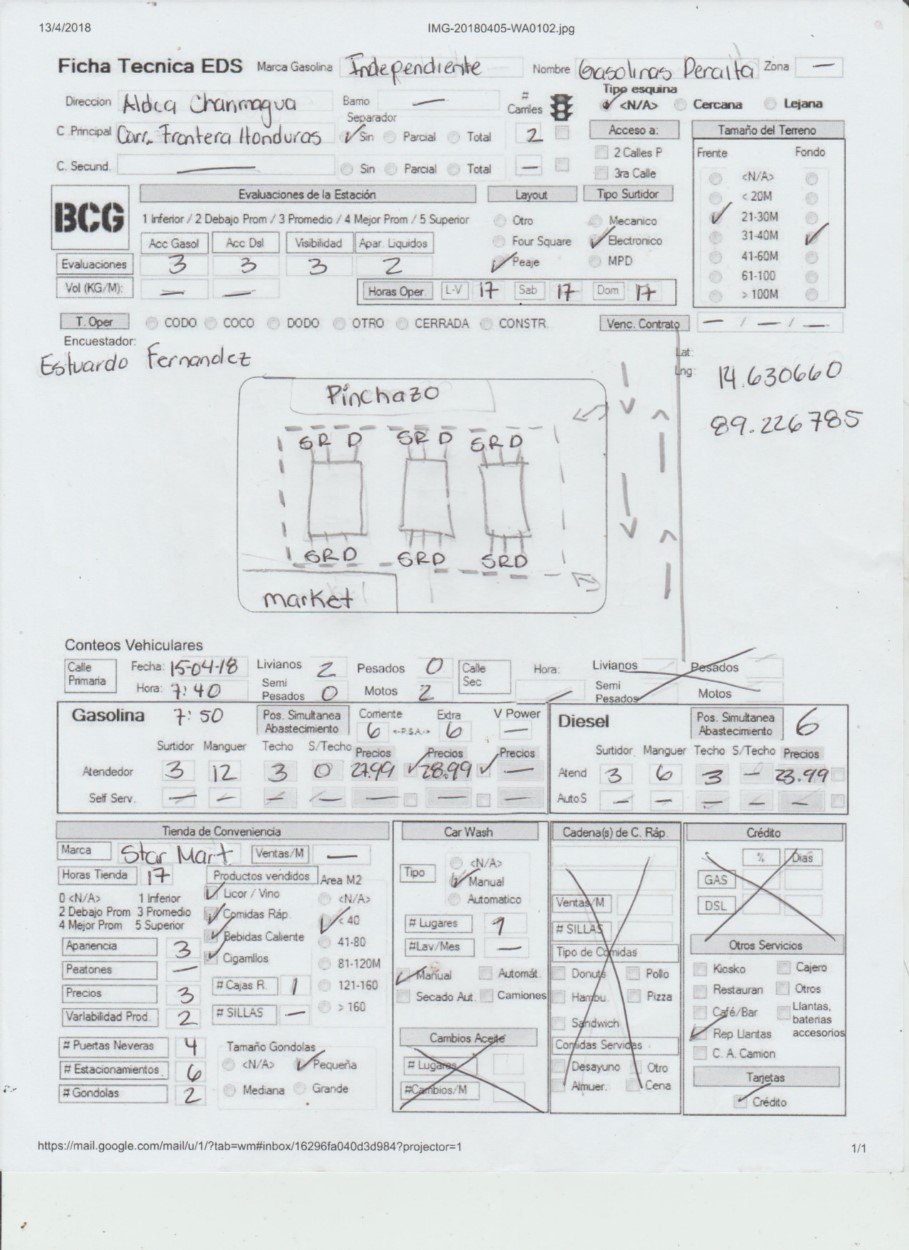 13/4/2018 IMG-20180405-WA0102.jpg
Ficha Tecnica EDS Marca Gasolina Independiente Nombre Gasolinas Peralta Zona —
Direccion Aldea Chanmagua Barrio — # Carriles Tipo esquina <N/A> Cercana Lejana
C. Principal Carr. Frontera Honduras Separador Sin Parcial Total 2 Acceso a: Tamaño del Terreno
2 Calles P Frente Fondo
C. Secund. — Sin Parcial Total — 3ra Calle <N/A>
BCG Evaluaciones de la Estación Layout Tipo Surtidor < 20M
1 Inferior / 2 Debajo Prom / 3 Promedio / 4 Mejor Prom / 5 Superior Otro Mecanico 21-30M
Acc Gasol Acc Dsl Visibilidad Apar. Liquidos Four Square Electronico 31-40M
Evaluaciones 3 3 3 2 Peaje MPD 41-60M
61-100
Vol (KG/M): — — Horas Oper L-V 17 Sab 17 Dom 17 > 100M
T. Oper CODO COCO DODO OTRO CERRADA CONSTR. Venc. Contrato — / — / —
Encuestador:
Estuardo Fernandez
Lat:
Lng: 14.630660
89.226785
Pinchazo
S R D S R D S R D
S R D S R D S R D
market
Conteos Vehiculares
Calle Primaria Fecha: 15-04-18 Livianos 2 Pesados 0 Calle Sec Hora: Livianos Pesados
Hora: 7:40 Semi Pesados 0 Motos 2 Semi Pesados Motos
Gasolina 7:50 Pos. Simultanea Abastecimiento Corriente 6 <-P.S.A.-> Extra 6 V Power — Diesel Pos. Simultanea Abastecimiento 6
Surtidor Manguer Techo S/Techo Precios Precios Precios Surtidor Manguer Techo S/Techo Precios
Atendedor 3 12 3 0 27.99 28.99 — Atend 3 6 3 — 23.99
Self Serv. — — — — — — — AutoS — — — — —
Tienda de Conveniencia Car Wash Cadena(s) de C. Ráp. Crédito
Marca Star Mart Ventas/M — <N/A> % Dias
Horas Tienda 17 Productos vendidos Area M2 Tipo Manual GAS
0 <N/A> 1 Inferior Licor / Vino <N/A> Automatico Ventas/M DSL
2 Debajo Prom 3 Promedio Comidas Ráp. < 40 # Lugares 1 # SILLAS
4 Mejor Prom 5 Superior Bebidas Caliente 41-80 #Lav/Mes — Tipo de Comidas Otros Servicios
Apariencia 3 Cigarrillos 81-120M Manual Automát. Donuts Pollo Kiosko Cajero
Peatones — # Cajas R. 1 121-160 Secado Aut. Camiones Hambu Pizza Restauran Otros
Precios 3 > 160 Sandwich Café/Bar Llantas, baterias accesorios
Variabilidad Prod. 2 # SILLAS — Cambios Aceite Comidas Servidas Rep Llantas
# Puertas Neveras 4 Tamaño Gondolas # Lugares Desayuno Otro C. A. Camion
# Estacionamientos 6 <N/A> Pequeña #Cambios/M Almuer. Cena Tarjetas
# Gondolas 2 Mediana Grande Crédito
https://mail.google.com/mail/u/1/?tab=wm#inbox/16296fa040d3d984?projector=1 1/1